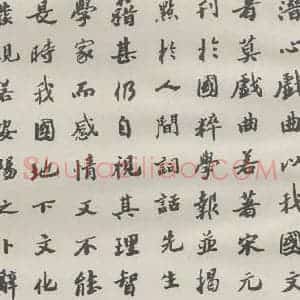 潛心戲曲以我國文
者莫戲曲若著宋元
刊於國粹學報並揭
點於人間詞話先生
籍甚仍自視其理智
學家而感情又不能
是時我國地下文化
現若安陽之卜辭